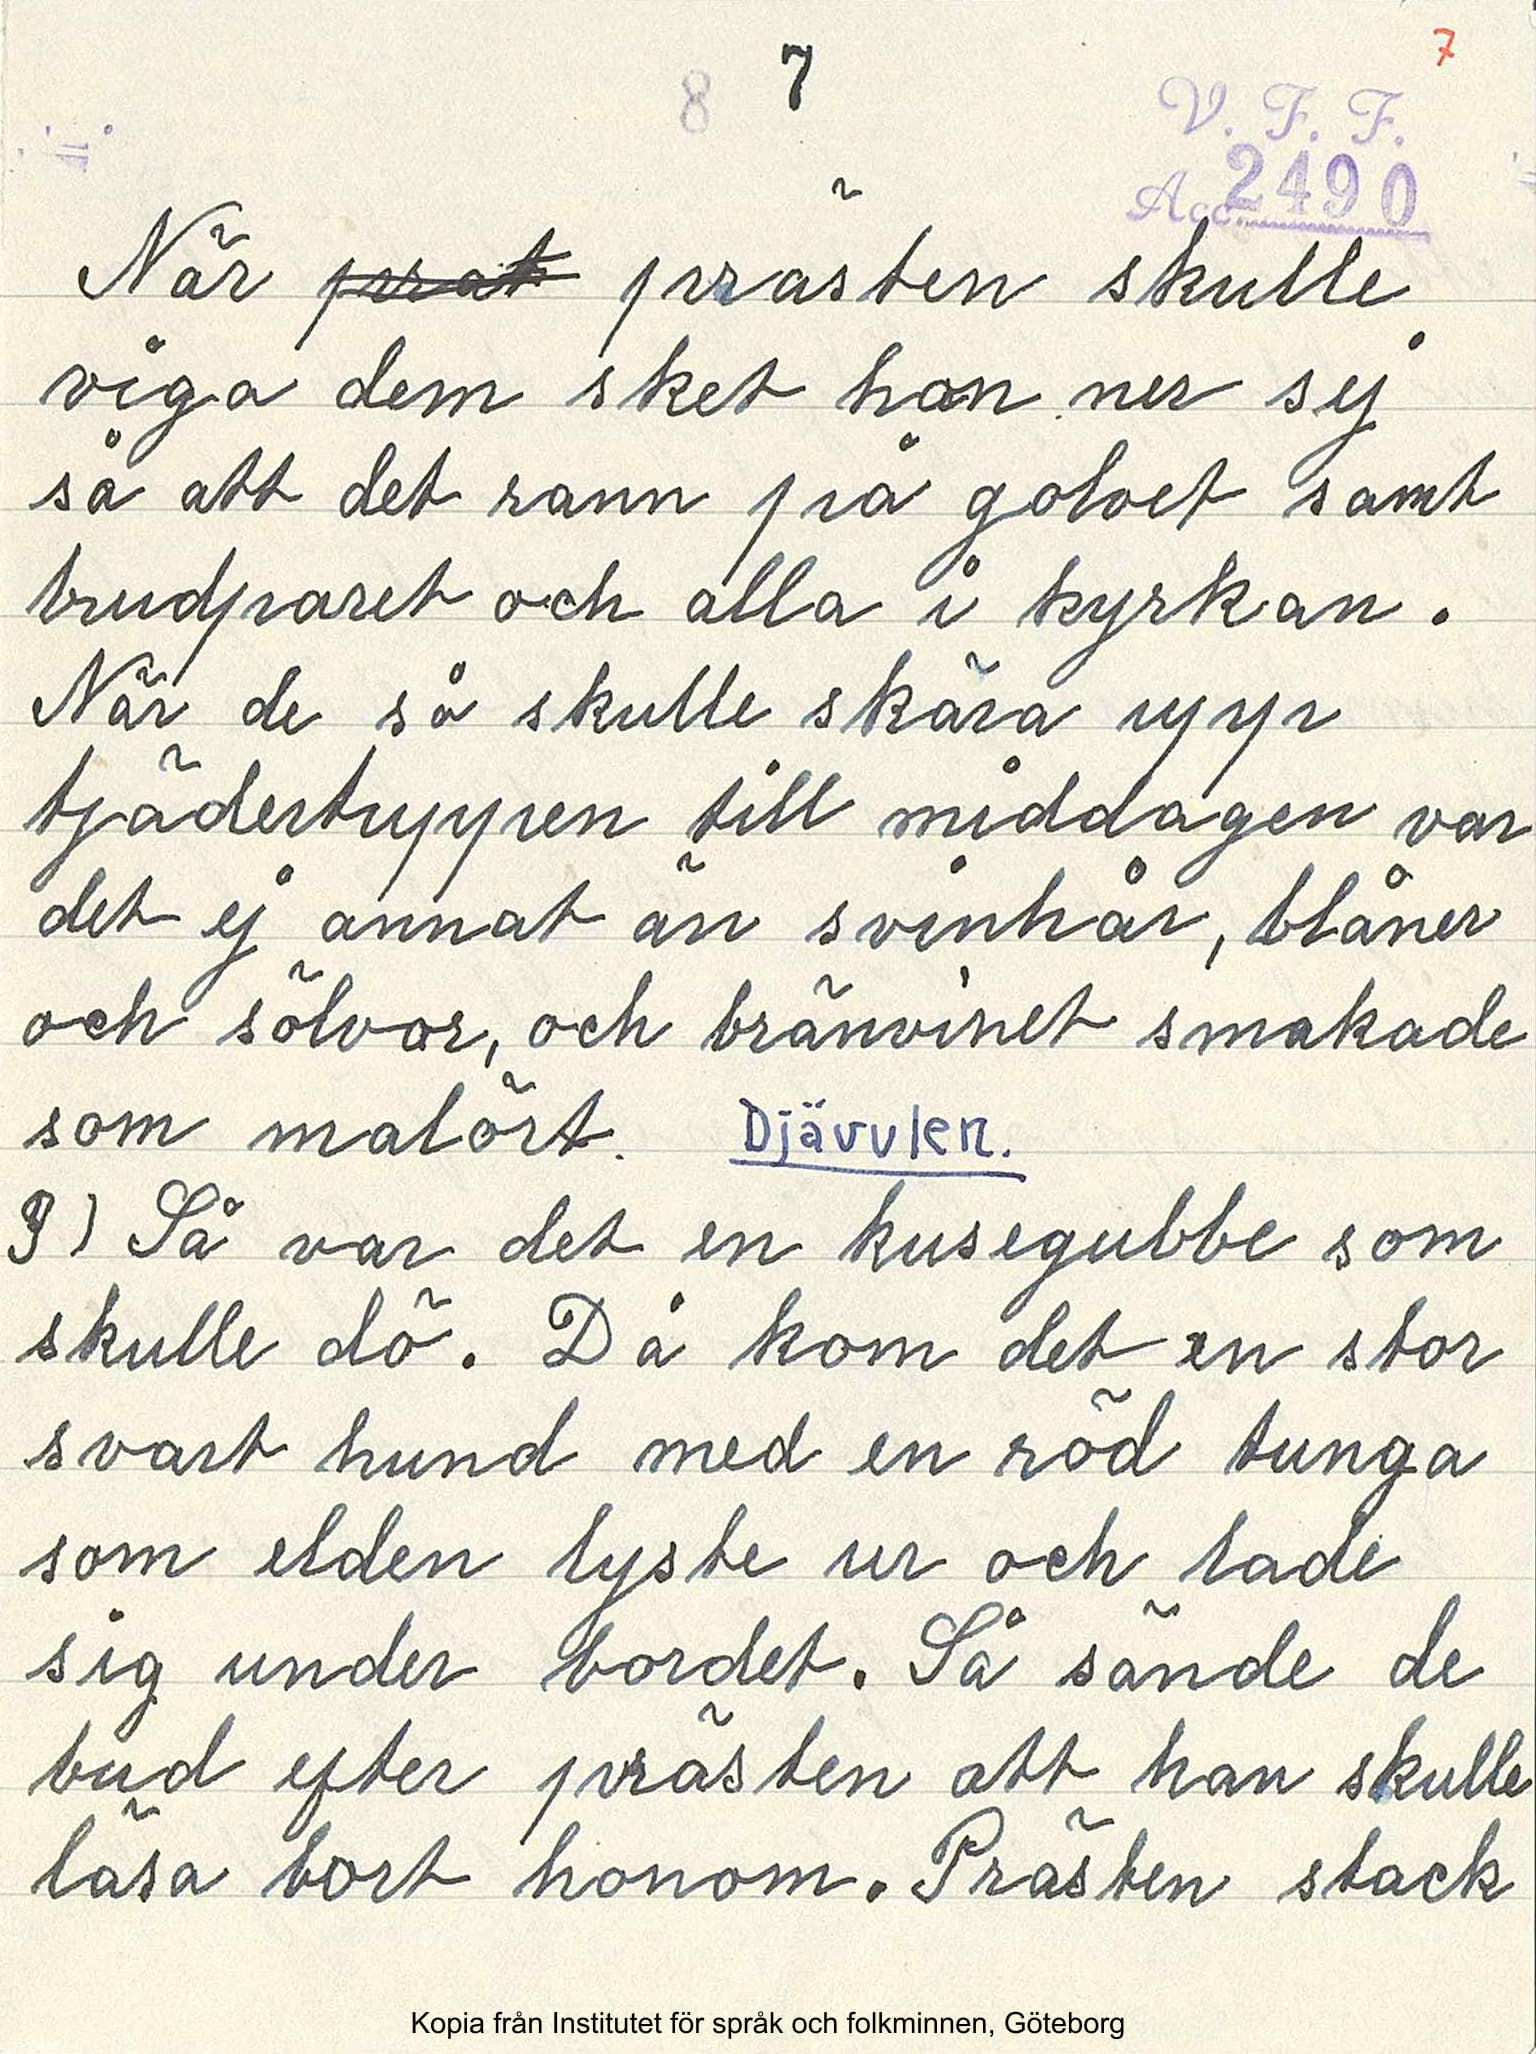 7
8 7
V. F. F.
Acc. 2490
När prat prästen skulle
viga dem sket han ner sej
så att det rann på golvet samt
brudparet och alla i kyrkan.
När de så skulle skära upp
tjädertuppen till middagen var
det ej annat än svinhår, blåner
och sölvor, och bränvinet smakade
som malört. Djävulen.
3) Så var det en kusegubbe som
skulle dö. Då kom det en stor
svart hund med en röd tunga
som elden lyste ur och lade
sig under bordet. Så sände de
bud efter prästen att han skulle
läsa bort honom. Prästen stack
Kopia från Institutet för språk och folkminnen, Göteborg